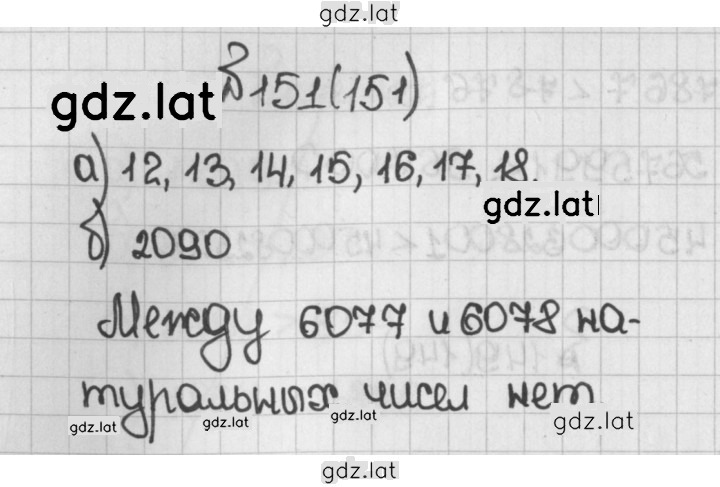 gdz.lat
№151(151)
gdz.lat
а) 12, 13, 14, 15, 16, 17, 18.
gdz.lat
б) 2090
Между 6077 и 6078 на-
туральных чисел нет
gdz.lat gdz.lat gdz.lat gdz.lat
gdz.lat